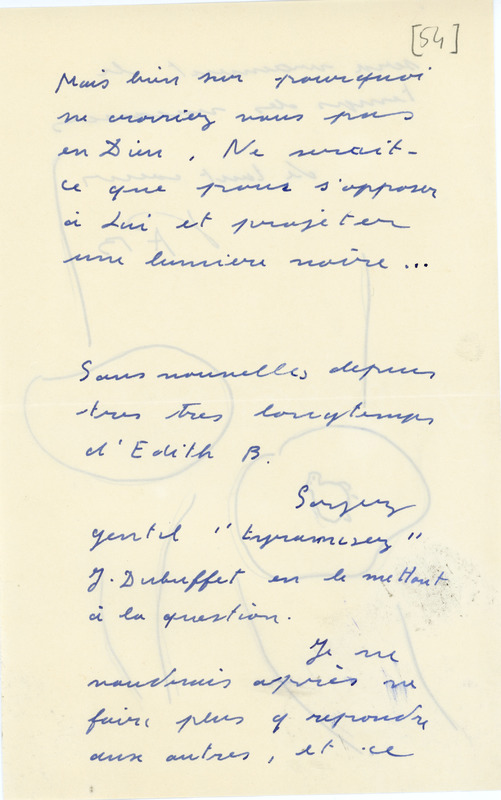 [54]
Mais bien sur pourquoi
ne croiriez vous pas
en Dieu. Ne serait-
ce que pour s'opposer
à Lui et projeter
une lumiere noire...
Sans nouvelles depuis
tres tres longtemps
d'Edith B.
Soyez
gentil "tyrannisez"
J. Dubuffet en le mettant
à la question.
Je ne
voudrais après ne
faire plus q repondre
aux autres, et ce